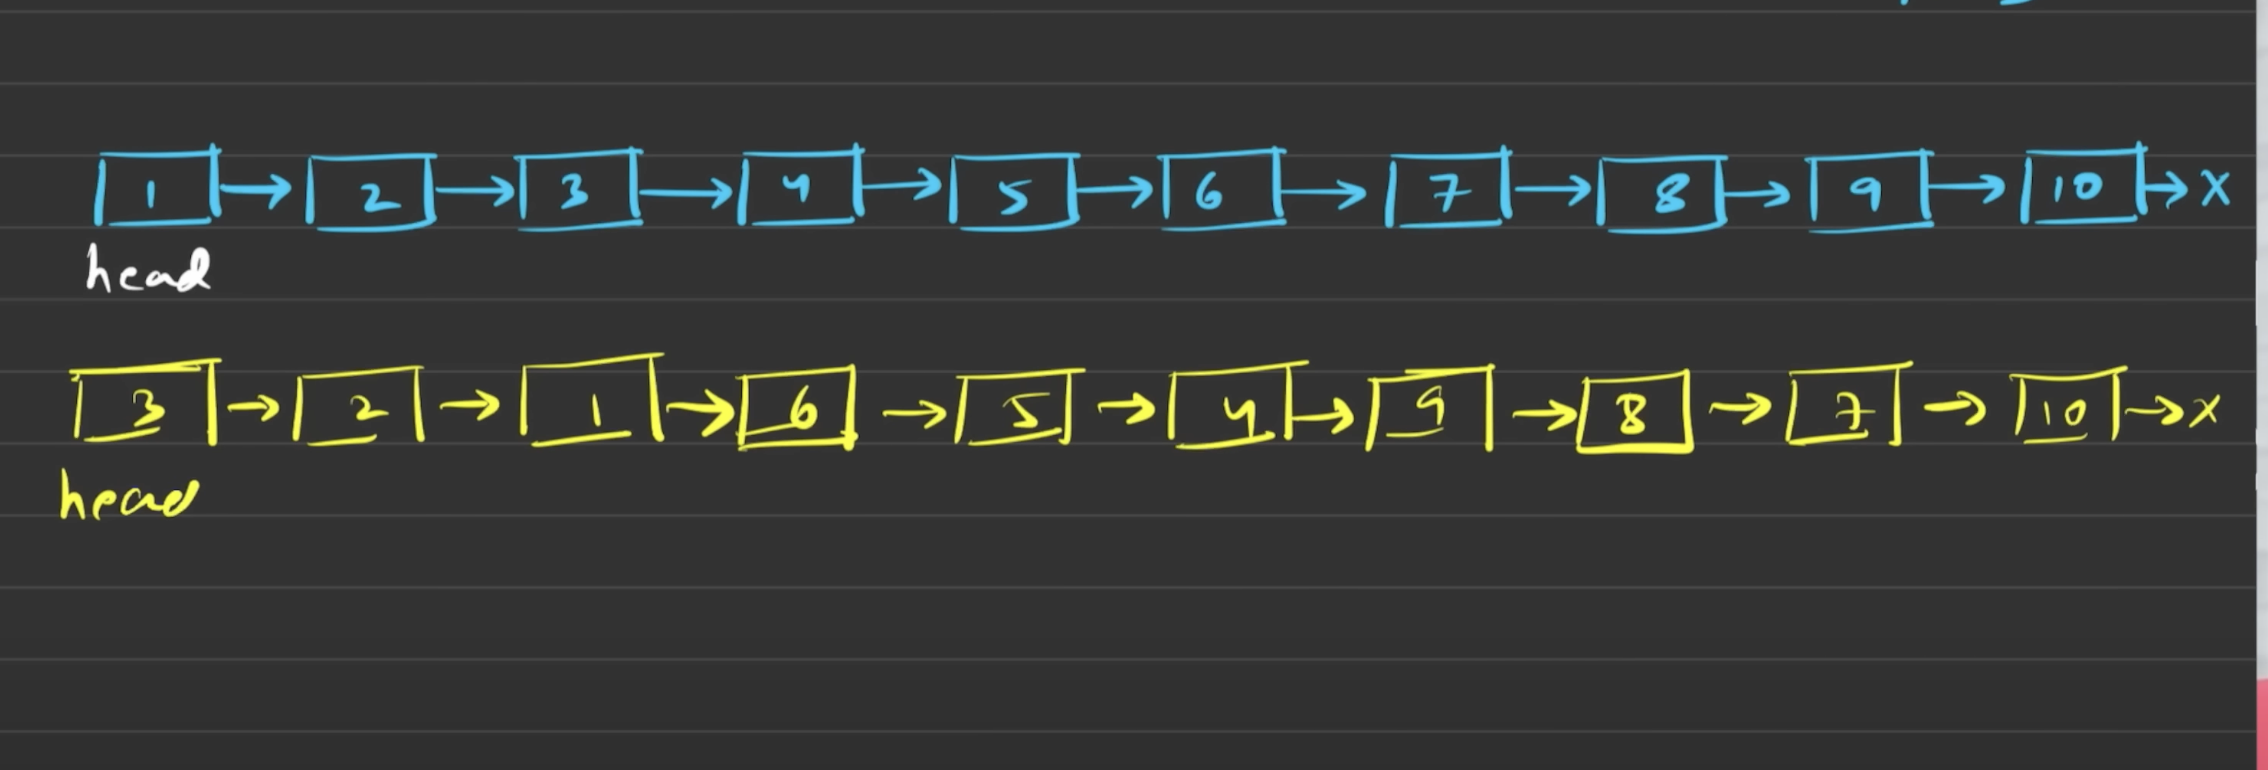 1 → 2 → 3 → 4 → 5 → 6 → 7 → 8 → 9 → 10 → X
head
3 → 2 → 1 → 6 → 5 → 4 → 9 → 8 → 7 → 10 → X
head